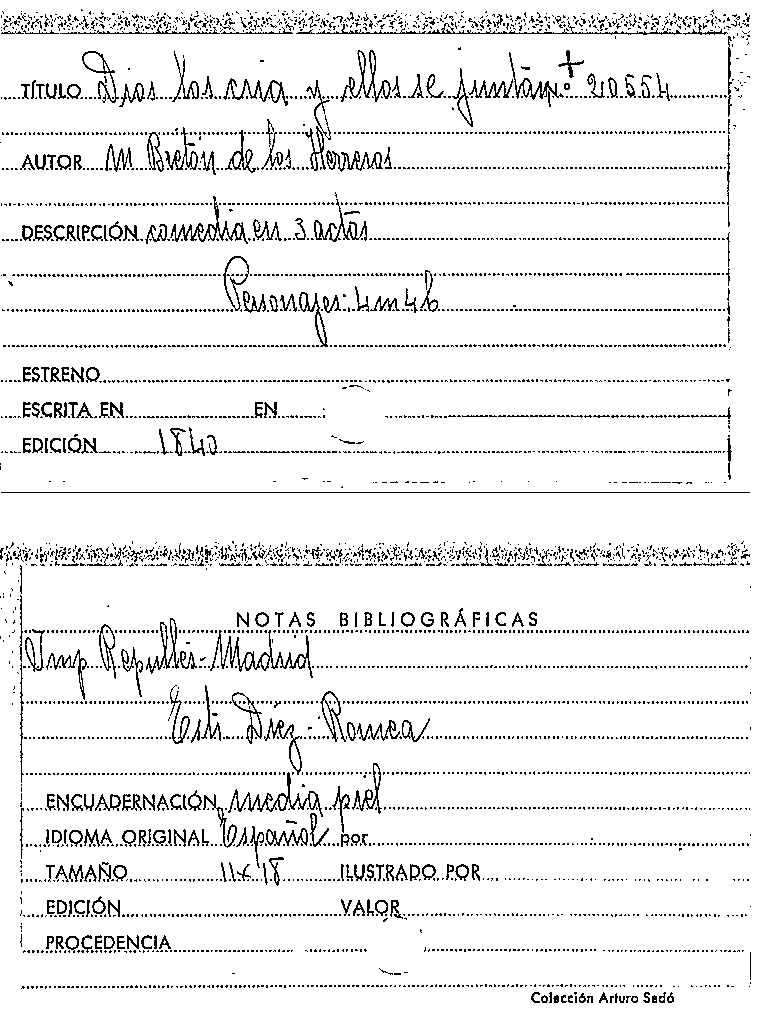 TÍTULO Dios los cria y ellos se juntan n.º 20554
AUTOR M Bretón de los Herreros
DESCRIPCIÓN comedia en 3 actos
Personajes: 4m 4h
ESTRENO
ESCRITA EN EN
EDICIÓN 1840
NOTAS BIBLIOGRÁFICAS
Imp Repullés - Madrid
Estr Díez - Romea
ENCUADERNACIÓN media piel
IDIOMA ORIGINAL Español por
TAMAÑO 11x18 ILUSTRADO POR
EDICIÓN VALOR
PROCEDENCIA
Colección Arturo Sedó